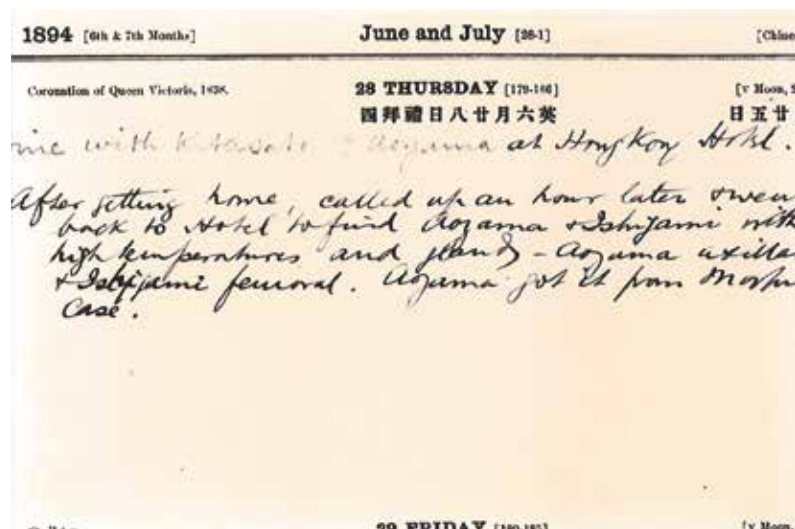 1894 [6th & 7th Months] June and July [28-1] [Chine
Coronation of Queen Victoria, 1838. 28 THURSDAY [179-186] [v Moon, 2
四拜禮日八廿月六英 日五廿
ine with Kitasato & Aoyama at HongKong Hotel.
After getting home, called up an hour later & wen
back to Hotel to find Aoyama & Ishigami with
high temperatures and glands - Aoyama axilla
& Ishigami femoral. Aoyama got it from
case.
29 FRIDAY [180-185] [v Moon,